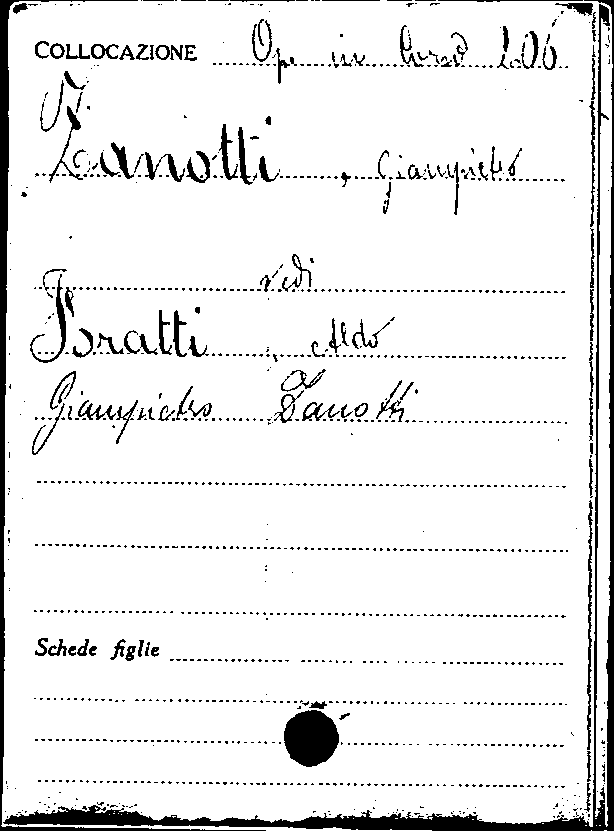 COLLOCAZIONE Op. in Corso 206
Zanotti, Giampietro
vedi
Foratti, Aldo
Giampietro Zanotti
Schede figlie